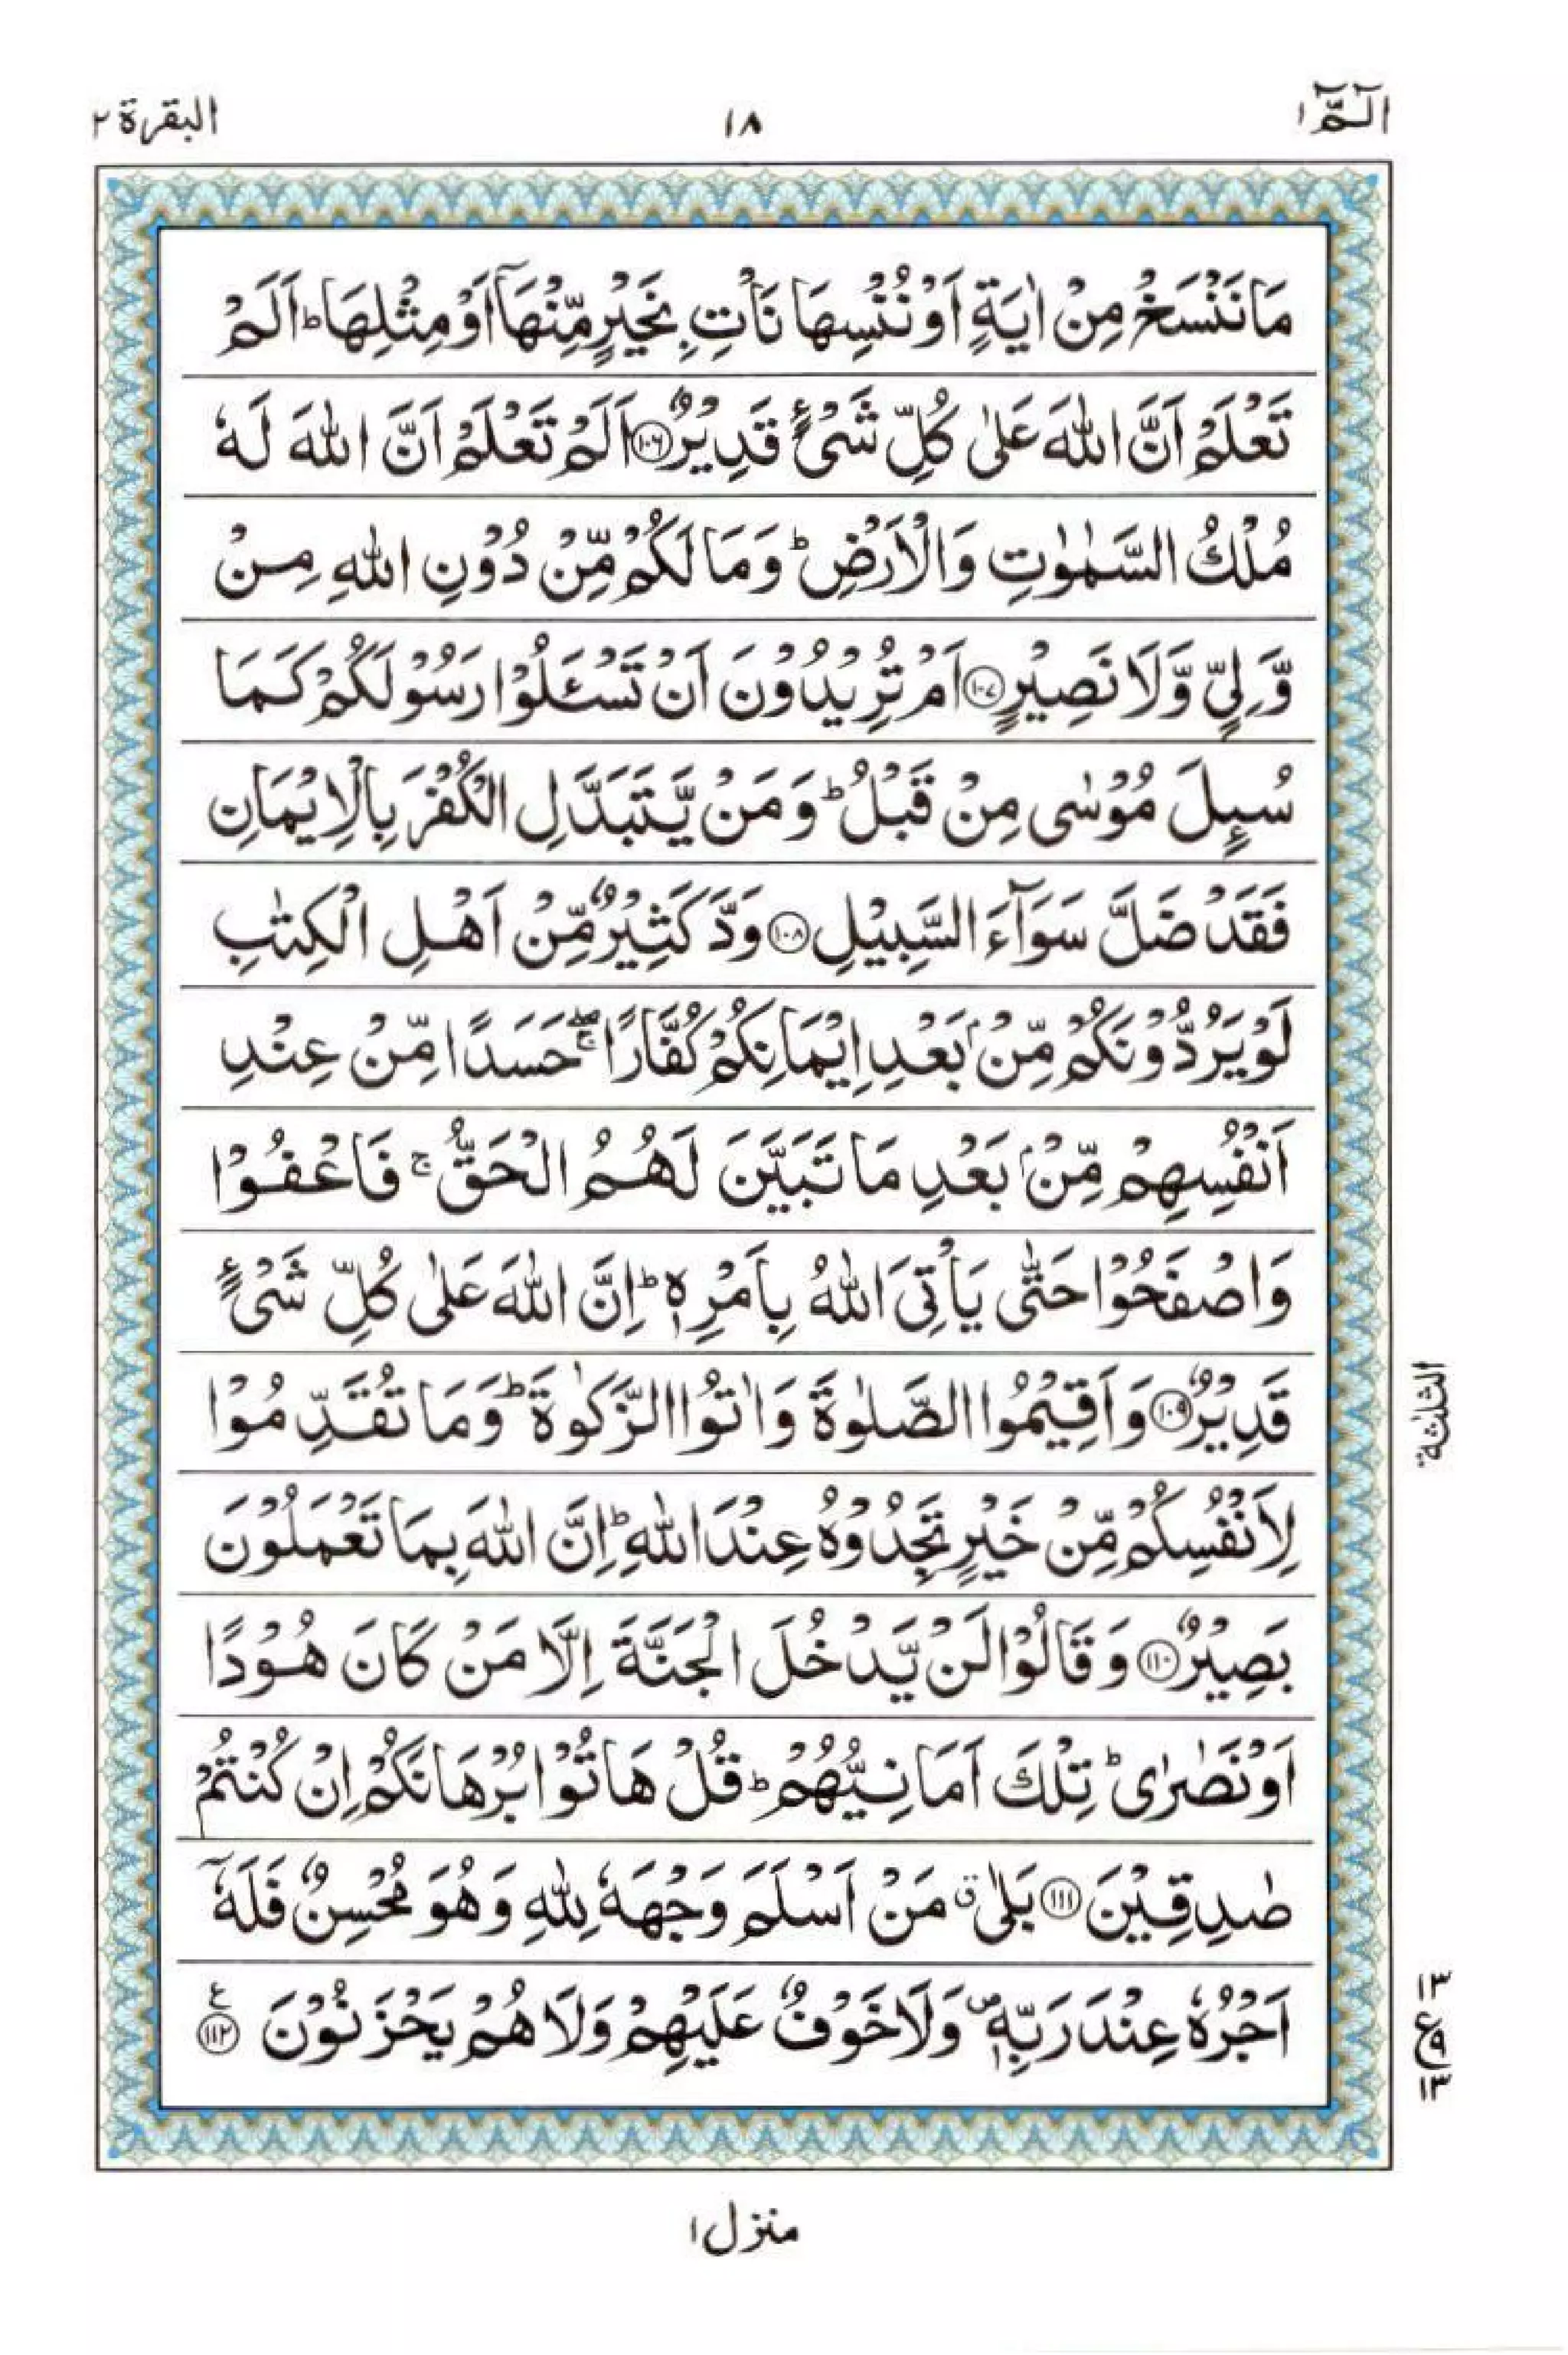 الٓـمّٓ ١
١٨
البقرة ٢
مَا نَنْسَخْ مِنْ اٰيَةٍ اَوْ نُنْسِهَا نَاْتِ بِخَيْرٍ مِّنْهَآ اَوْ مِثْلِهَا ؕ اَلَمْ
تَعْلَمْ اَنَّ اللّٰهَ عَلٰى كُلِّ شَىْءٍ قَدِيْرٌ ﴿۱۰۶﴾ اَلَمْ تَعْلَمْ اَنَّ اللّٰهَ لَهٗ
مُلْكُ السَّمٰوٰتِ وَالْاَرْضِ ؕ وَمَا لَكُمْ مِّنْ دُوْنِ اللّٰهِ مِنْ
وَّلِىٍّ وَّلَا نَصِيْرٍ ﴿۱۰۷﴾ اَمْ تُرِيْدُوْنَ اَنْ تَسْـَٔلُوْا رَسُوْلَكُمْ كَمَا
سُىِٕلَ مُوْسٰى مِنْ قَبْلُ ؕ وَمَنْ يَّتَبَدَّلِ الْكُفْرَ بِالْاِيْمَانِ
فَقَدْ ضَلَّ سَوَآءَ السَّبِيْلِ ﴿۱۰۸﴾ وَدَّ كَثِيْرٌ مِّنْ اَهْلِ الْكِتٰبِ
لَوْ يَرُدُّوْنَكُمْ مِّنْۢ بَعْدِ اِيْمَانِكُمْ كُفَّارًا ۖۚ حَسَدًا مِّنْ عِنْدِ
اَنْفُسِهِمْ مِّنْۢ بَعْدِ مَا تَبَيَّنَ لَهُمُ الْحَقُّ ۚ فَاعْفُوْا
وَاصْفَحُوْا حَتّٰى يَاْتِىَ اللّٰهُ بِاَمْرِهٖ ؕ اِنَّ اللّٰهَ عَلٰى كُلِّ شَىْءٍ
قَدِيْرٌ ﴿۱۰۹﴾ وَاَقِيْمُوا الصَّلٰوةَ وَاٰتُوا الزَّكٰوةَ ؕ وَمَا تُقَدِّمُوْا
الثلثة
لِاَنْفُسِكُمْ مِّنْ خَيْرٍ تَجِدُوْهُ عِنْدَ اللّٰهِ ؕ اِنَّ اللّٰهَ بِمَا تَعْمَلُوْنَ
بَصِيْرٌ ﴿۱۱۰﴾ وَقَالُوْا لَنْ يَّدْخُلَ الْجَنَّةَ اِلَّا مَنْ كَانَ هُوْدًا
اَوْ نَصٰرٰى ؕ تِلْكَ اَمَانِيُّهُمْ ؕ قُلْ هَاتُوْا بُرْهَانَكُمْ اِنْ كُنْتُمْ
صٰدِقِيْنَ ﴿۱۱۱﴾ بَلٰى ۗ مَنْ اَسْلَمَ وَجْهَهٗ لِلّٰهِ وَهُوَ مُحْسِنٌ فَلَهٗٓ
اَجْرُهٗ عِنْدَ رَبِّهٖ ۪ وَلَا خَوْفٌ عَلَيْهِمْ وَلَا هُمْ يَحْزَنُوْنَ ﴿۱۱۲﴾ ع
١٣
ع ٩
١٣
منزل ١